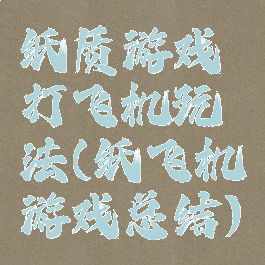 纸质游戏
打飞机玩
法(纸飞机
游戏总结)